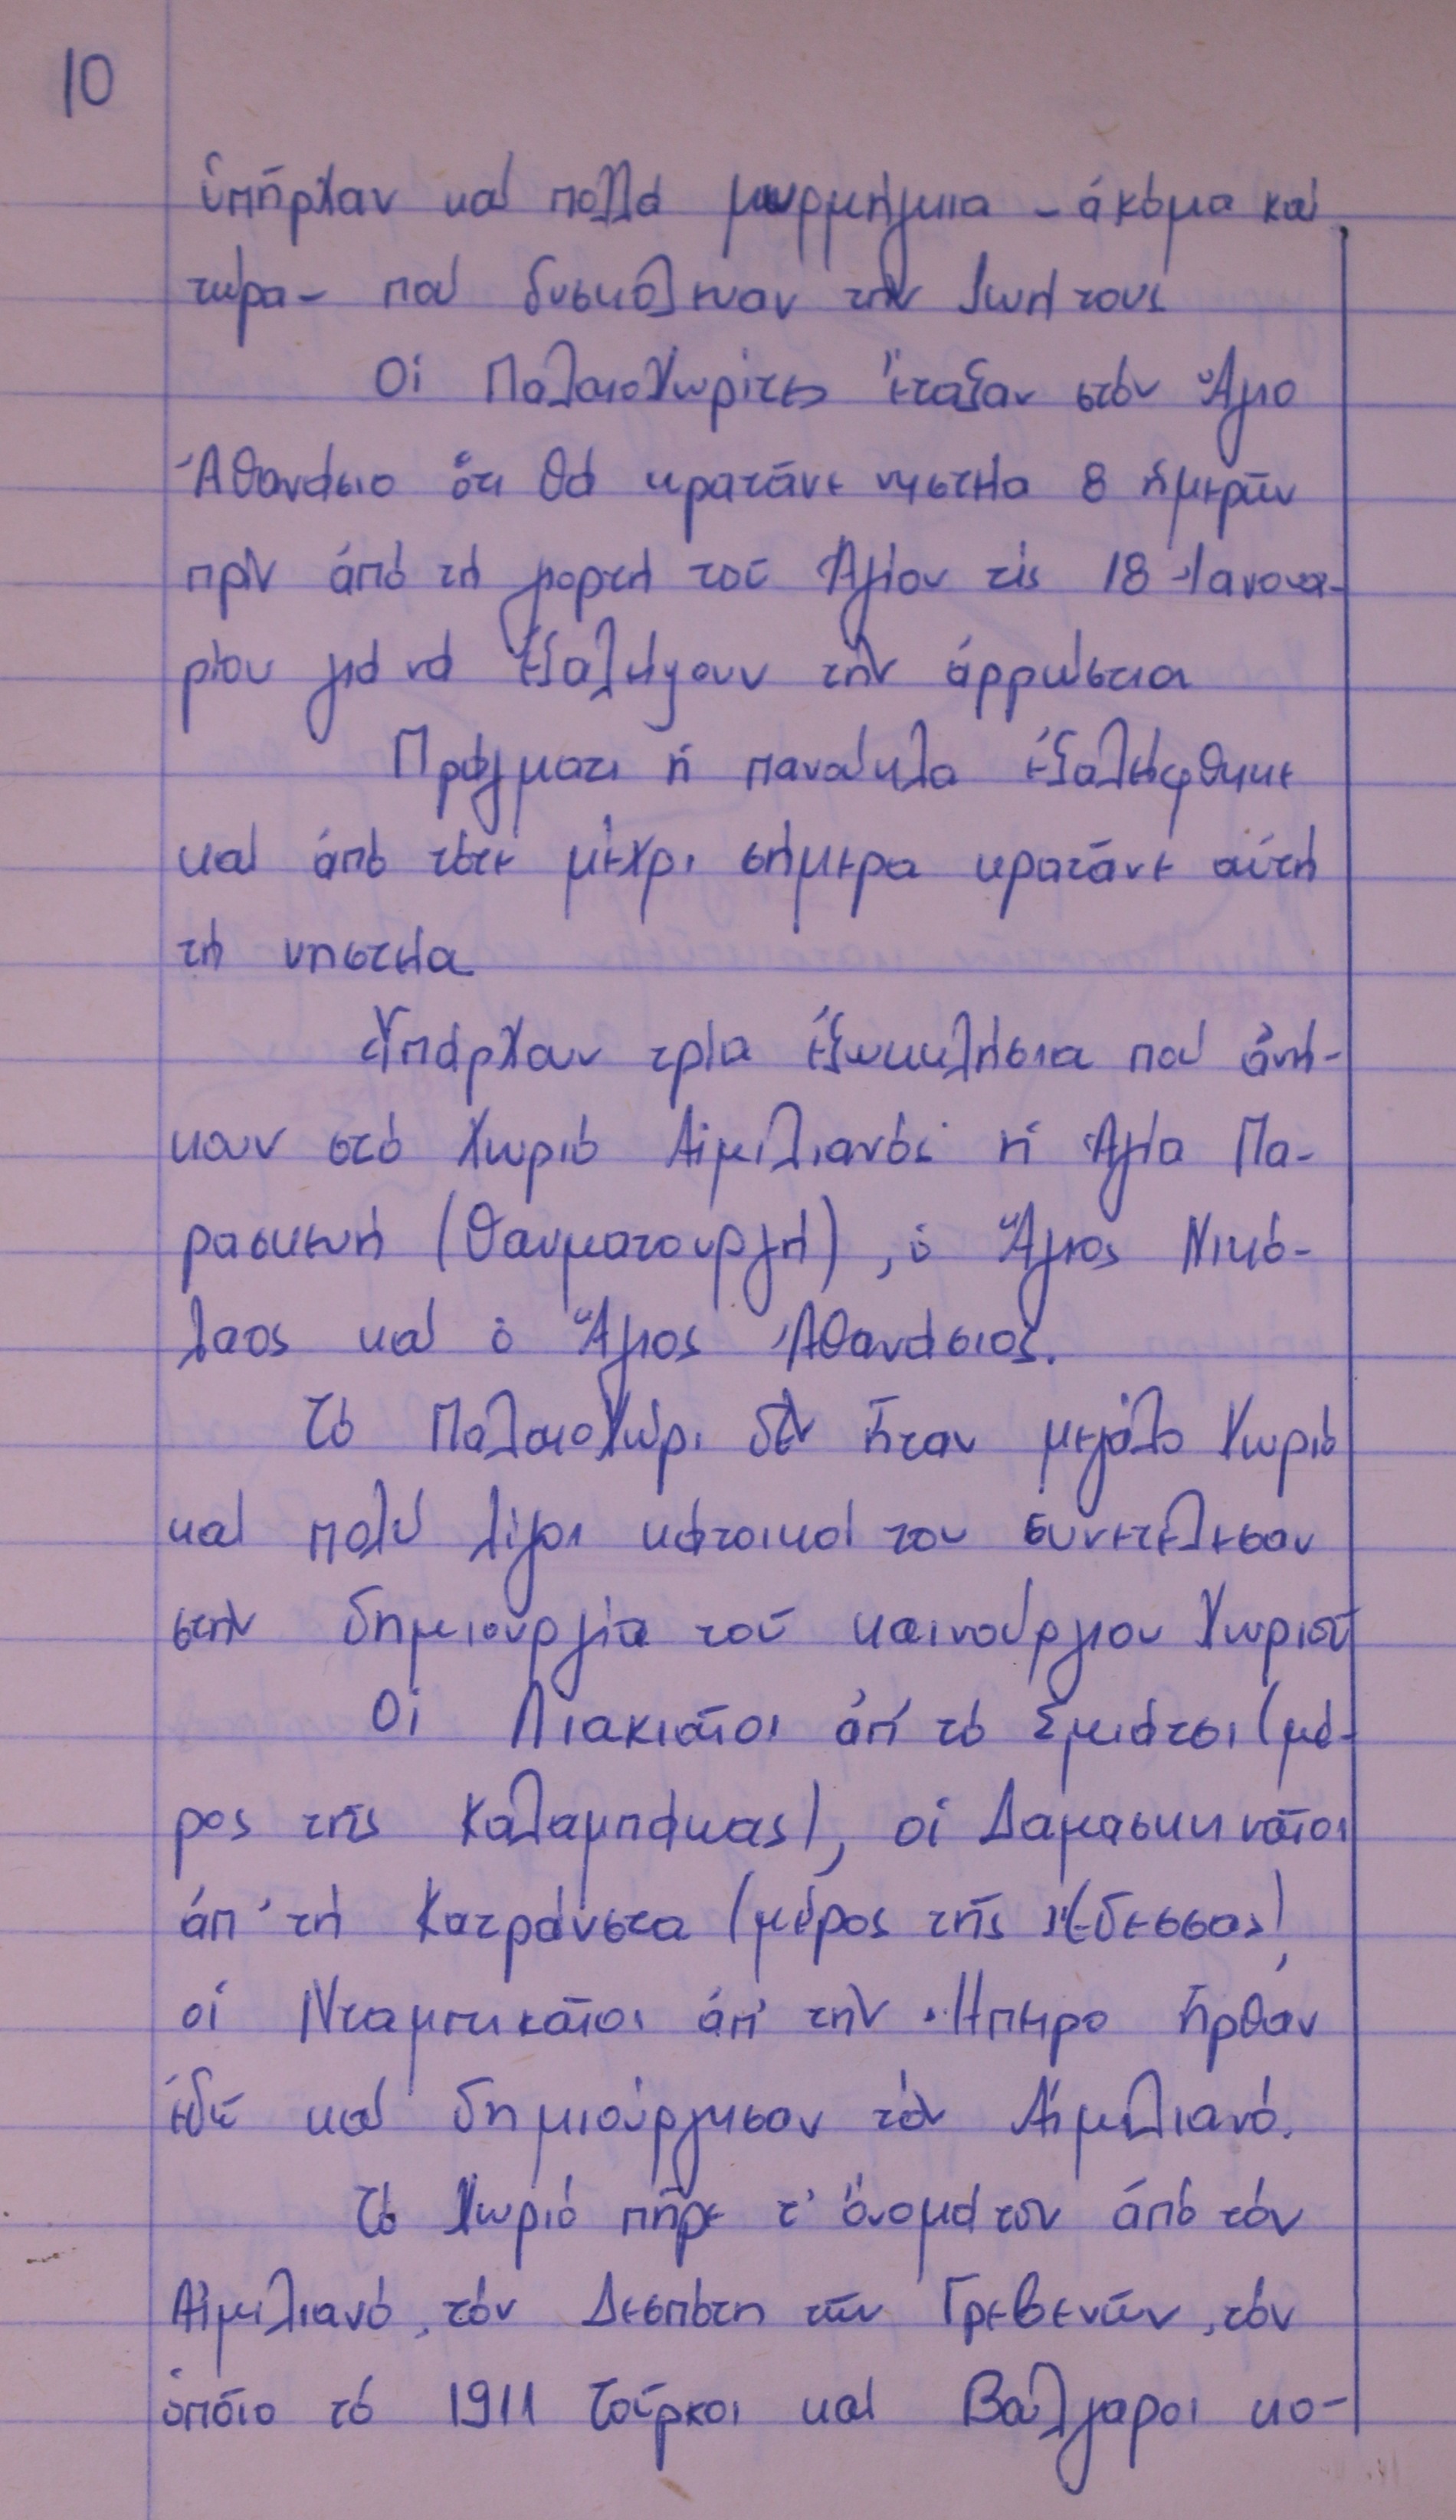 10
ὑπῆρχαν καί πολλά μυρμήγκια - ἀκόμα καί
τώρα - πού δυσκόλευαν τήν ζωή τους
Οἱ Παλαιοχωρίτες ἔταξαν στόν Ἅγιο
Ἀθανάσιο ὅτι θά κρατᾶνε νηστεία 8 ἡμερῶν
πρίν ἀπό τή γιορτή τοῦ Ἁγίου τίς 18 Ἰανουα-
ρίου γιά νά ἐξαλείψουν τήν ἀρρώστια
Πράγματι ἡ πανούκλα ἐξαλείφθηκε
καί ἀπό τότε μέχρι σήμερα κρατᾶνε αὐτή
τή νηστεία
Ὑπάρχουν τρία ἐξωκκλήσια πού ἀνή-
κουν στό χωριό Αἰμιλιανός· ἡ Ἁγία Πα-
ρασκευή (θαυματουργή), ὁ Ἅγιος Νικό-
λαος καί ὁ Ἅγιος Ἀθανάσιος.
Τό Παλαιοχώρι δέν ἦταν μεγάλο χωριό
καί πολύ λίγοι κάτοικοί του συνετέλεσαν
στήν δημιουργία τοῦ καινούργιου χωριοῦ
Οἱ Λιακιαῖοι ἀπ' τό Σμιάτσι (μέ-
ρος τῆς Καλαμπάκας), οἱ Δαμασκηναῖοι
ἀπ' τή Κατράνστα (μέρος τῆς Ἔδεσσας),
οἱ Νταμπικαῖοι ἀπ' τήν Ἤπειρο ἦρθαν
ἐδῶ καί δημιούργησαν τόν Αἰμιλιανό.
Τό χωριό πῆρε τ' ὄνομά του ἀπό τόν
Αἰμιλιανό, τόν Δεσπότη τῶν Γρεβενῶν, τόν
ὁποῖο τό 1911 Τοῦρκοι καί Βούλγαροι κο-